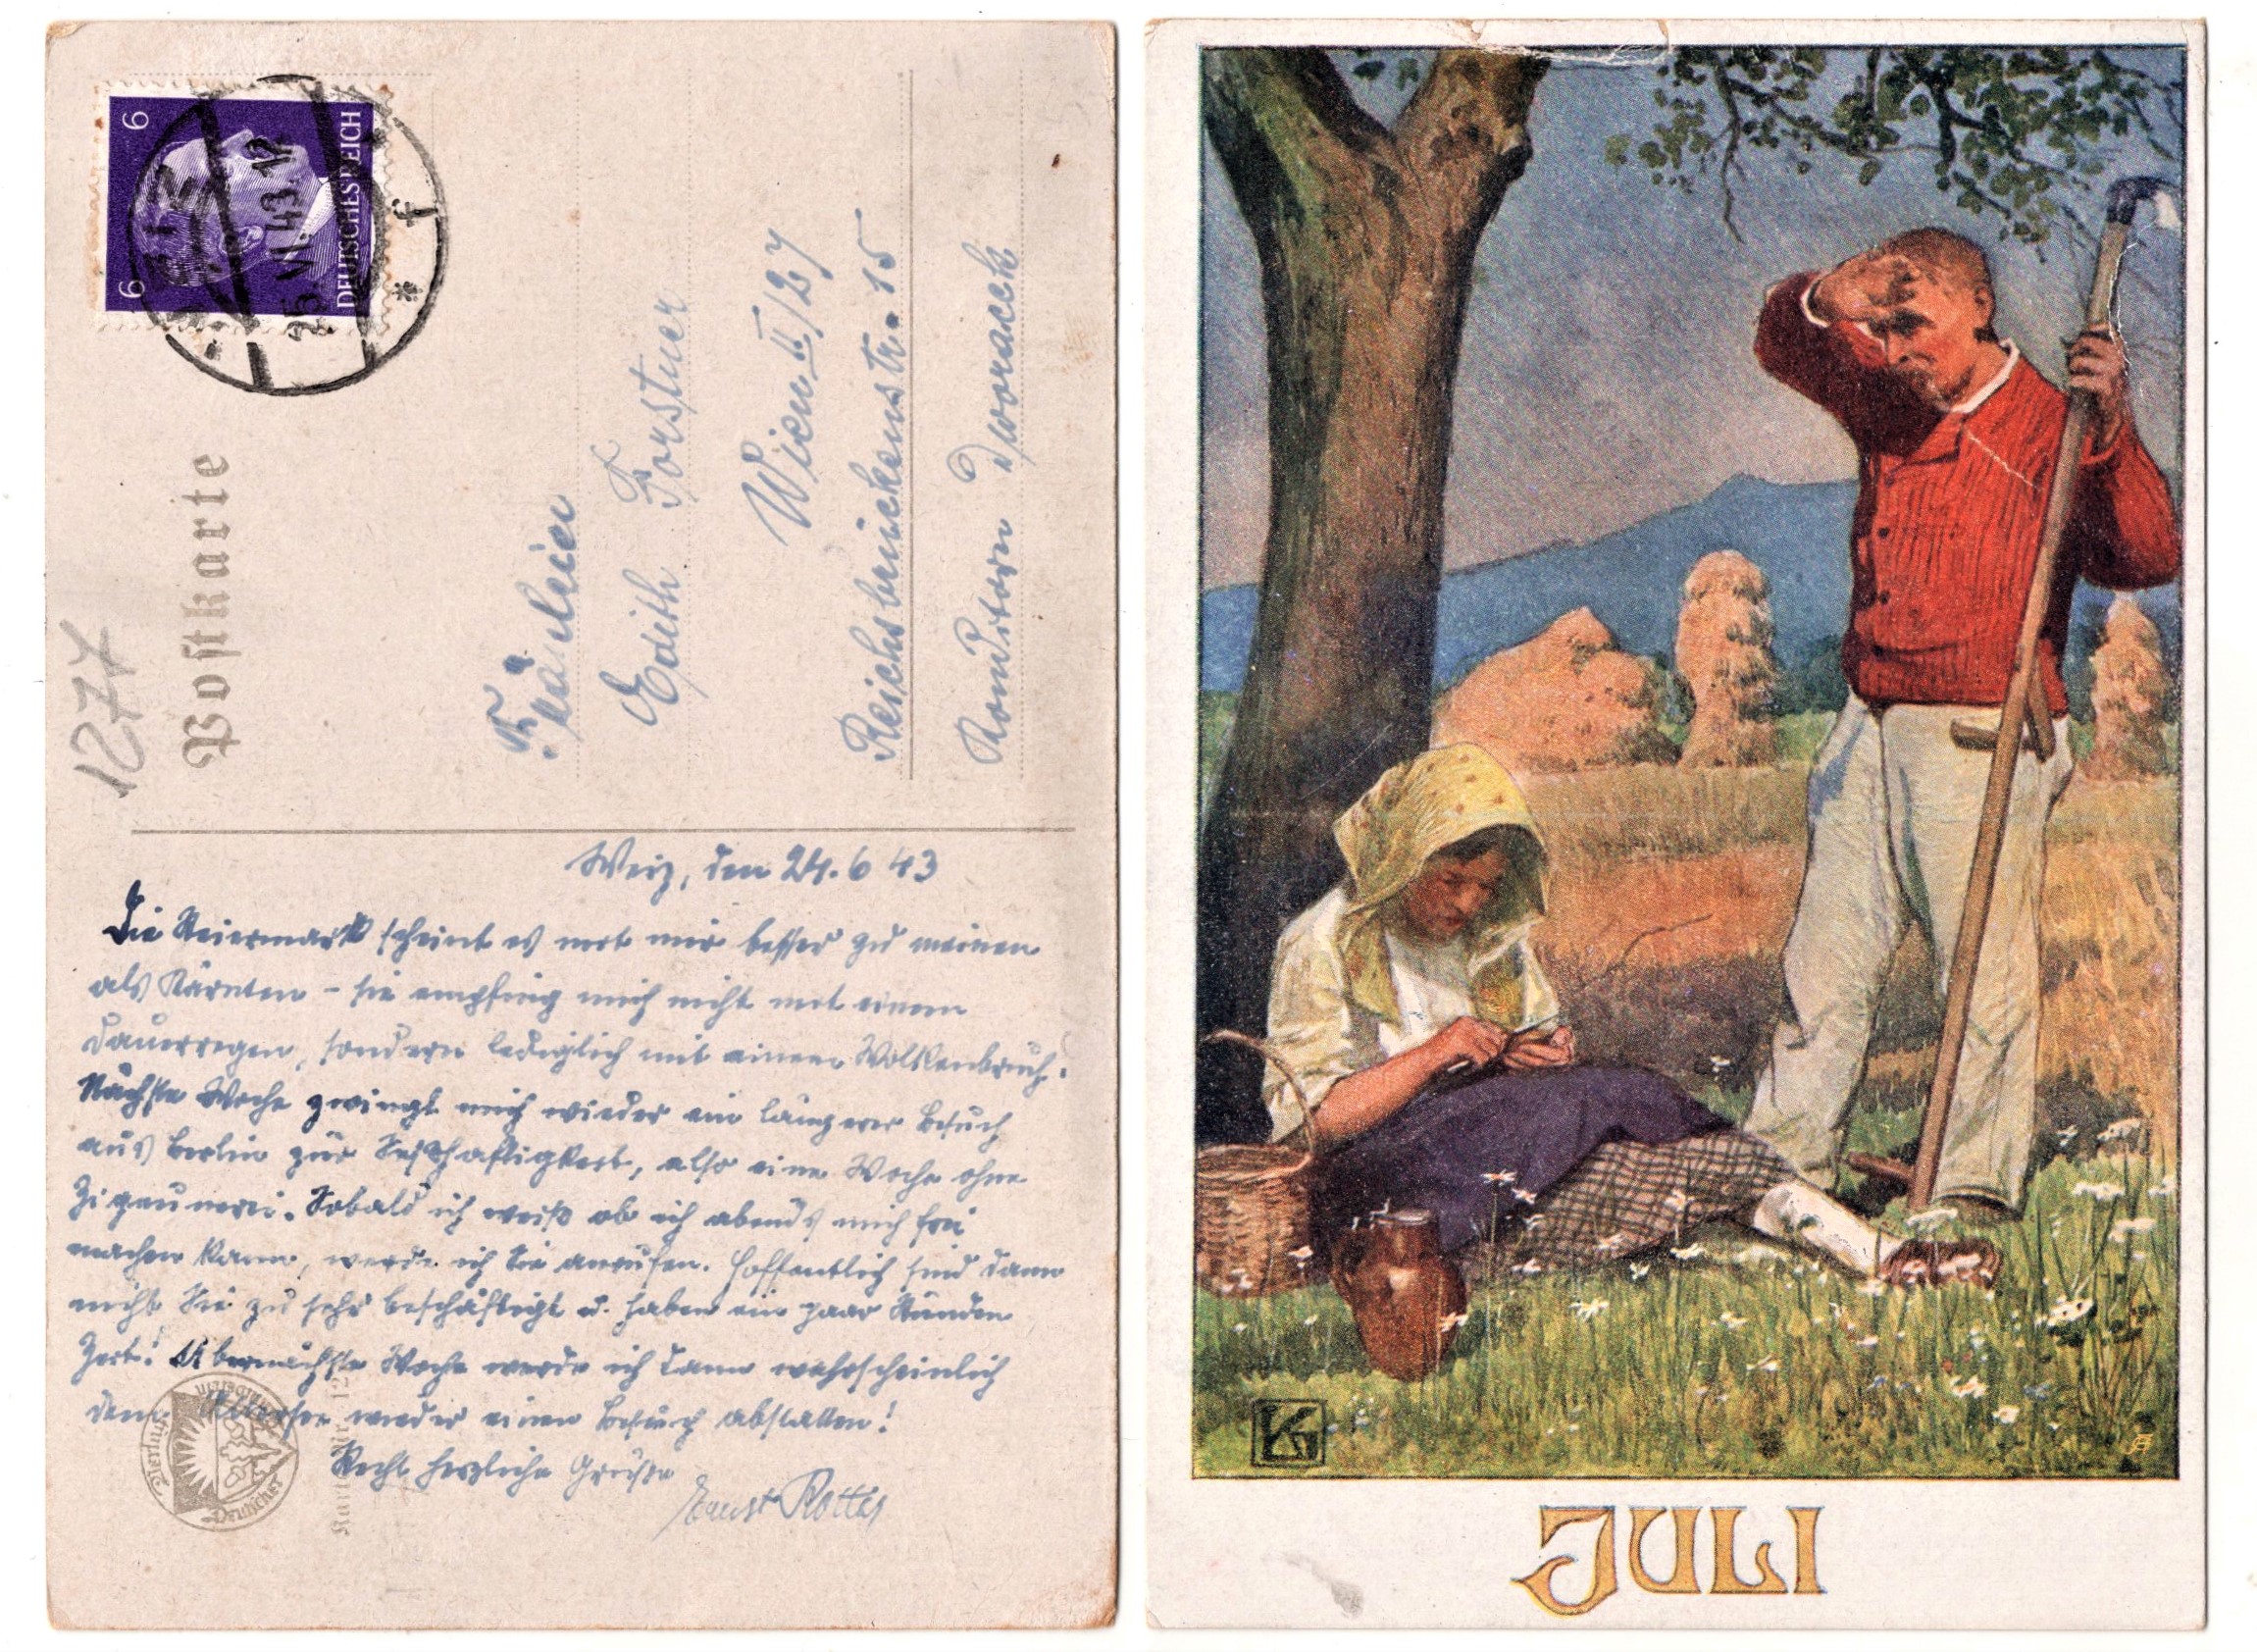 6
6
DEUTSCHES REICH
WEIZ
25.VI.43.12
* f *
1277
Postkarte
Fräulein
Edith Forstner
Wien II/27
Reichsbrückenstr. 15
Konditorei Dworacek
Weiz, den 24.6 43
Die Steiermark scheint es mit mir besser zu meinen
als Kärnten – sie empfing mich nicht mit einem
Dauerregen, sondern lediglich mit einem Wolkenbruch.
Nächste Woche zwingt mich wieder ein längerer Besuch
aus Berlin zur Seßhaftigkeit, also eine Woche ohne
Zigeunerei. Sobald ich weiß ob ich abends mich frei
machen kann, werde ich Sie anrufen. Hoffentlich sind dann
nicht Sie zu sehr beschäftigt u. haben ein paar Stunden
Zeit! Übernächste Woche werde ich dann wahrscheinlich
dem Attersee wieder einen Besuch abstatten!
Recht herzliche Grüße
Ernst
Karte Nr. 12
JULI